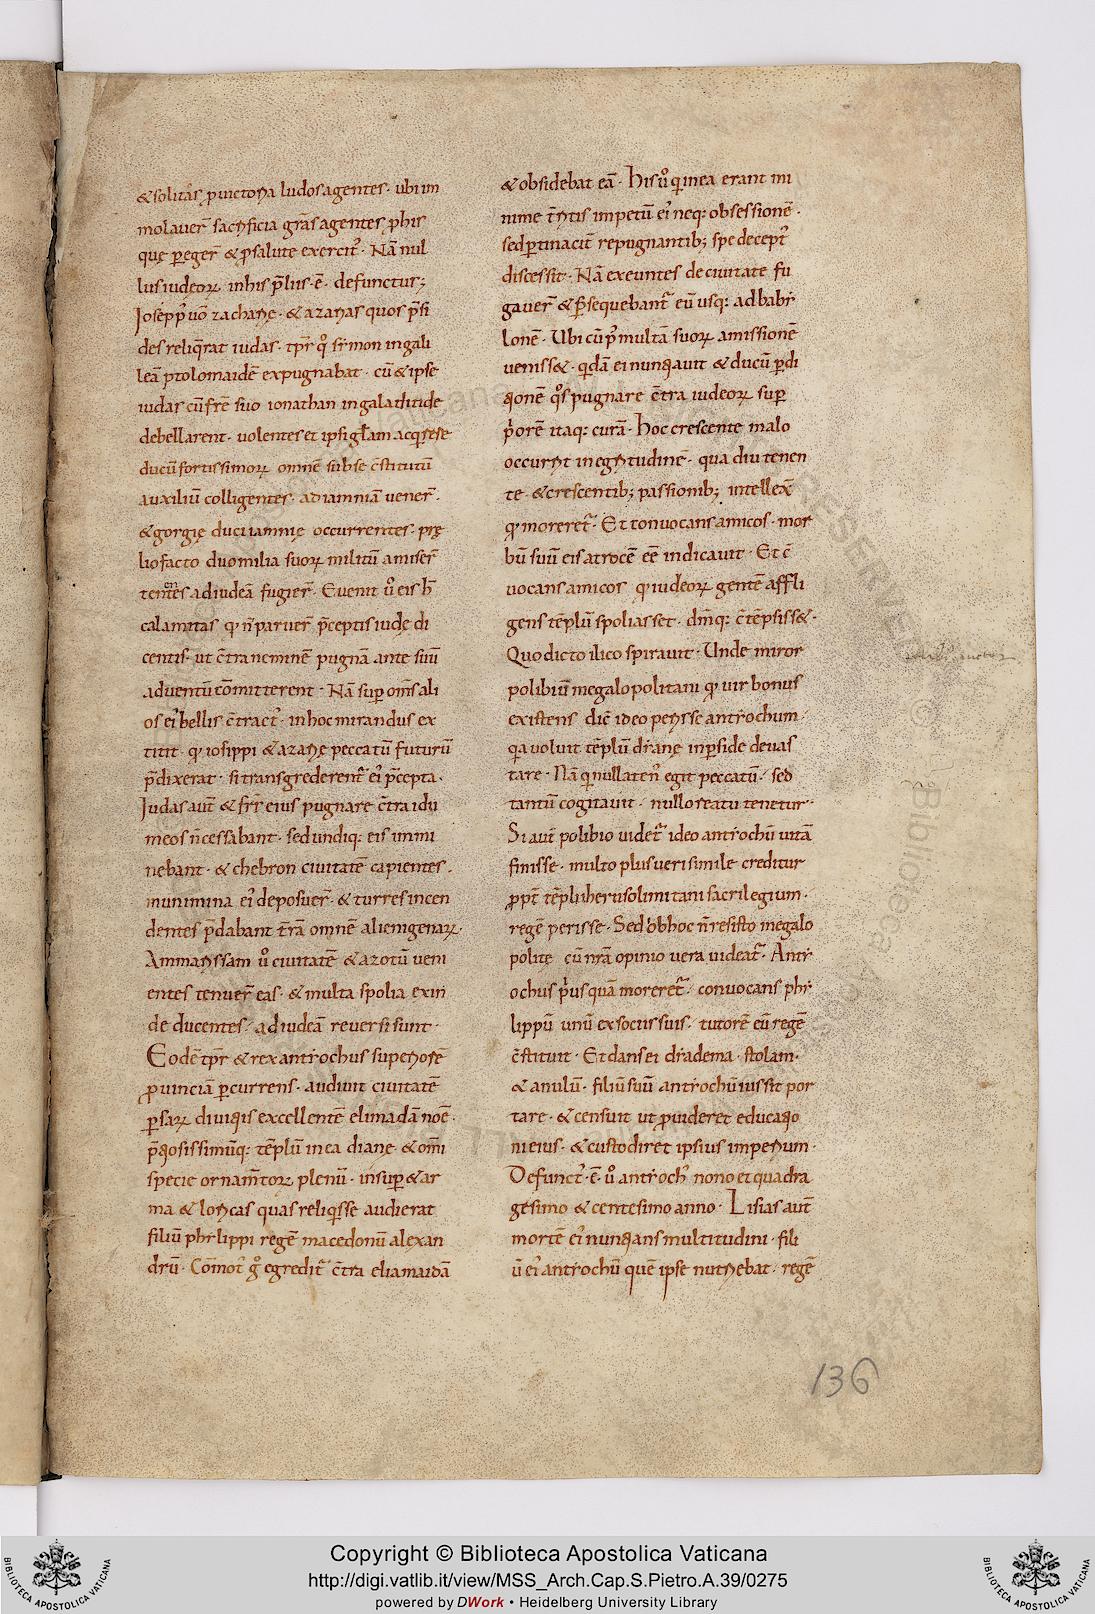 & solitas ꝓ uictoria ludos agentes · ubi im
molauer̄ sacrificia gr̄as agentes ꝓ his
quę ꝑeger̄ & ꝓ salute exercit᷒ · Nā nul
lus iudeoꝝ in his p̄liis · ē · defunctus;
Iosepp᷒ uō zacharię · & azarias quos p̄si
des reliq̄rat iudas · tp̄r qͦ symon in gali
lea ptolomaidē expugnabat · cū & ipse
iudas cū frē suo ionathan in galathitide
debellarent · uolentes et ipsi gl̄am acq̄rere
ducū fortissimoꝝ omnē sub se c̄stitutū
auxiliū colligentes · ad iamniā uener̄ ·
& gorgię duci iamnię occurrentes · prę
lio facto duo milia suoꝝ militū amiser̄
ad iudeā fugier̄ · Euenit ū eis h̄
calamitas qꝫ n̄ paruer̄ p̄ceptis iudę di
centis · ut c̄tra neminē pugnā ante suū
aduentū cōmitterent · Nā suꝑ om̄s ali
os ei᷒ bellis c̄tract᷒ · in hoc mirandus ex
titit · qꝫ iosippi & azarię peccatū futurū
p̄dixerat · si transgrederent᷒ ei᷒ p̄cepta ·
Iudas aut̄ & fr̄r eius pugnare c̄tra idu
meos n̄ cessabant · sed undiqꝫ eis immi
nebant · & chebron ciuitatē capientes ·
munimina ei᷒ deposuer̄ · & turres incen
dentes p̄dabant t̄rā omnē alienigenaꝝ ·
Ammarissam ū ciuitatē & azotū ueni
entes tenuer̄ eas · & multa spolia exin
de ducentes · ad iudeā reuersi sunt ·
Eodē tp̄r & rex antiochus superiorē
ꝓuinciā ꝑcurrens · audiuit ciuitatē
ꝑsaꝝ diuitiis excellentē elimadā noē ·
p̄tiosissimūqꝫ tēplū in ea dianę · & om̄i
specie ornam̄toꝝ plenū · insuꝑ & ar
ma & loricas quas reliq̄sse audierat
filiū philippi regē macedonū alexan
drū · Cōmot᷒ gͦ egredit᷒ c̄tra eliamaidā
& obsidebat eā · His ū q̄ in ea erant mi
nime t̄ritis impetū ei᷒ neqꝫ obsessionē ·
sed ꝑtinacit̄ repugnantibꝫ spe decept᷒
discessit · Nā exeuntes de ciuitate fu
gauer̄ & ꝑsequebant᷒ eū usqꝫ ad babi
lonē · Ubi cū p᷒ multā suoꝝ amissionē
uenisse& · q̄dā ei nuntiauit & ducū ꝑdi
tionē qͦs pugnare c̄tra iudeoꝝ suꝑ
p̓orē itaqꝫ curā · Hoc crescente malo
occurrit in egritudinē · qua diu tenen
te · & crescentibꝫ passionibꝫ intellex̄
qꝫ moreret᷒ · Et conuocans amicos · mor
bū suū eis atrocē eē indicauit · Et c̄
uocans amicos qꝫ iudeoꝝ gentē affli
gens tēplū spoliasset · dm̄qꝫ c̄tēpsiss& ·
Quo dicto ilico spirauit · Unde miror
polibiū megalopolitani qꝫ uir bonus
existens dic̄ ideo perisse antiochum ·
q̄a uoluit tēplū dianę in ꝑside deuas
tare · Nā q̄ nullaten᷒ egit peccatū · sed
tantū cogitauit · nullo reatu tenetur ·
Si aut̄ polibio uidet᷒ ideo antiochū uitā
finisse · multo plus uerisimile creditur
ꝓpt̄ tēpli hierusolimitani sacrilegium ·
regē perisse · Sed ob hoc n̄ resisto megalo
politę cū nr̄a opinio uera uideat᷒ · Anti
ochus p̓us quā moreret᷒ · conuocans phi
lippū unū ex sociis suis · tutorē eū regē
c̄stituit · Et dans ei diadema · stolam ·
& anulū · filiū suū antiochū iussit por
tare · & censuit ut ꝓuideret educatio
ni eius · & custodiret ipsius imperium ·
Defunct᷒ · ē · ū antioch᷒ nono et quadra
gesimo & centesimo anno · Lisias aut̄
mortē ei᷒ nuntians multitudini · fili
ū ei᷒ antiochū quē ipse nutriebat · regē
136
Copyright © Biblioteca Apostolica Vaticana
http://digi.vatlib.it/view/MSS_Arch.Cap.S.Pietro.A.39/0275
powered by DWork • Heidelberg University Library